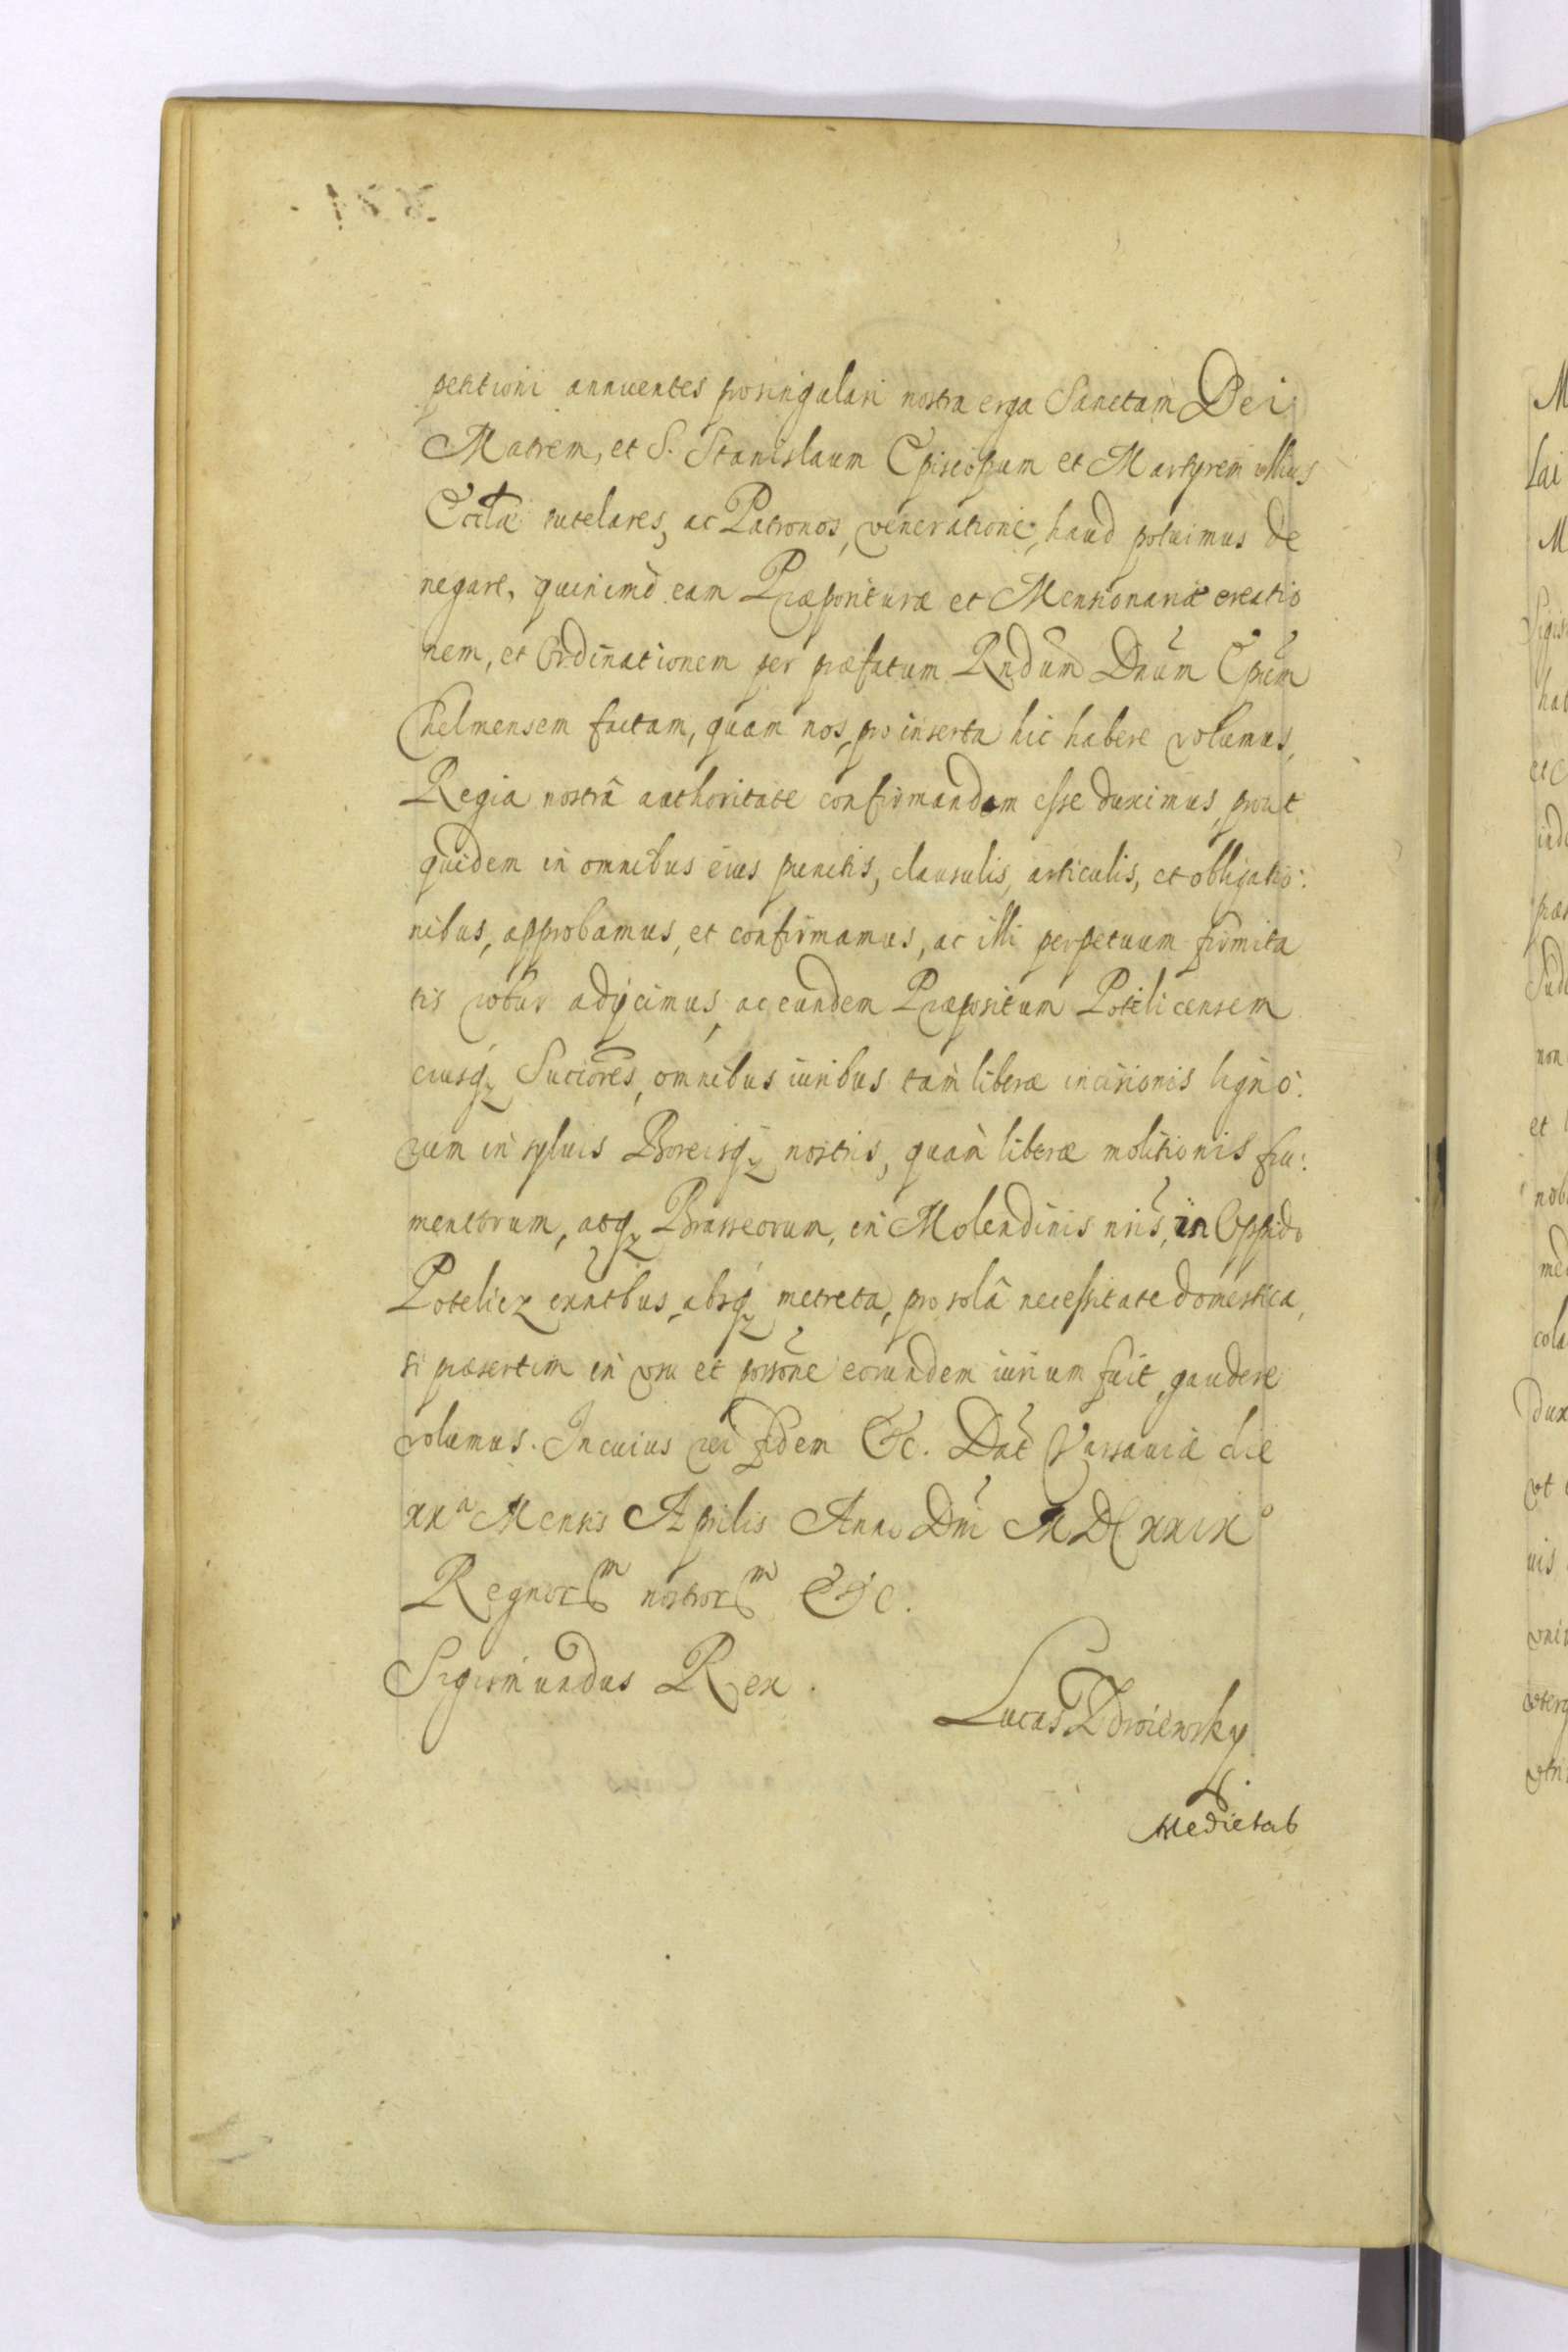 petitioni annuentes pro singulari nostra erga Sanctam Dei
Matrem, et S. Stanislaum Episcopum et Martyrem illius
Eccl̃æ tutelares, ac Patronos, veneratione, haud potuimus de
negare, quinimò eam Præposituræ et Mensionariæ creatio
nem, et Ordinationem per præfatum Rndum Dnum Epum
Chelmensem factam, quam nos pro inserta hic habere volumus,
Regia nostrâ authoritate confirmandam esse duximus, prout
quidem in omnibus eius punctis, clausulis, articulis, et obligatio:
nibus, approbamus, et confirmamus, ac illi perpetuum firmita
tis robur adijcimus, ac eundem Præpositum Potelicensem
eiusq̃ Succores, omnibus iuribus tam liberæ incisionis ligno:
rum in syluis Boreisq̃ nostris, quam liberæ molitionis fru:
mentorum, atq̃ Brasseorum, in Molendinis nris, in Oppido
Potelicz exntbus, absq̃ metreta, pro solâ necessitate domestica,
si præsertim in vsu et possone eorundem iurium fuit, gaudere
volumus. In cuius rei fidem &c. Dat Varsauiæ die
xxa Mensis Aprilis Anno Dni MDCxxix°
Regnorum nostrorum &c.
Sigismundus Rex.
Lucas
Medietas